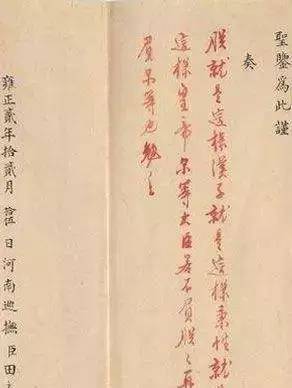 聖鑒爲此謹
奏
朕就是這樣漢子就是這樣秉性就
這樣皇帝尔等大臣若不負朕朕再
負尔等也勉之
雍正貳年拾貳月拾伍日河南巡撫臣田